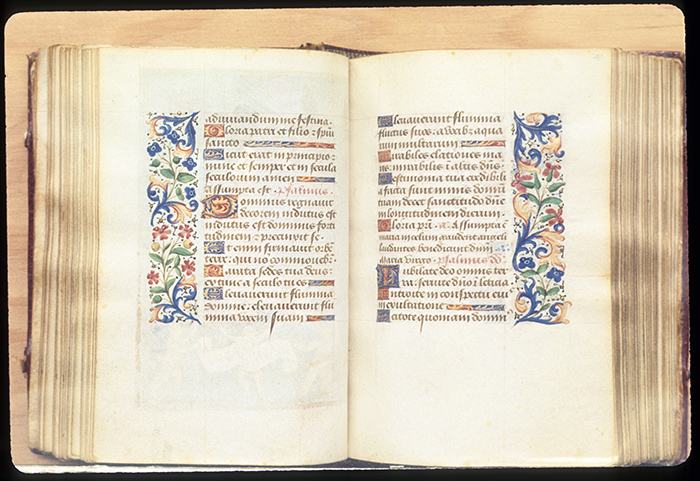 adiuuandum me festina.
Gloria patri et filio: et spiri
sancto
Sicut erat in principio
nunc et semper et in secula
seculorum amen
Assumpta est. psalmus.
Dominus regnauit
decorem indutus est
indutus est dominus forti
tudinem: precinxit se.
Et enim firmauit orbe
terre: qui non commouebi
Parata sedes tua deus
ex tunc a seculo tu es
Eleuauerunt flumina
domine: eleuauerunt flu
mina vocem suam
Eleuauerunt flumina
fluctus suos: a vocib aqua
rum multarum
Mirabiles elationes ma
ris: mirabilis in altis dns
Testimonia tua credibili
a facta sunt nimis domu
tuam decet sanctitudo domi
in longitudinem dierum.
Gloria pri. Assumpta e
maria in celum gaudent angeli
laudantes benedicunt dnm
Maria virgo. psalmus
Iubilate deo omnis ter
ra: seruite dno i letitia
Introite in conspectu eius
in exultatione
Scitote quoniam dominus